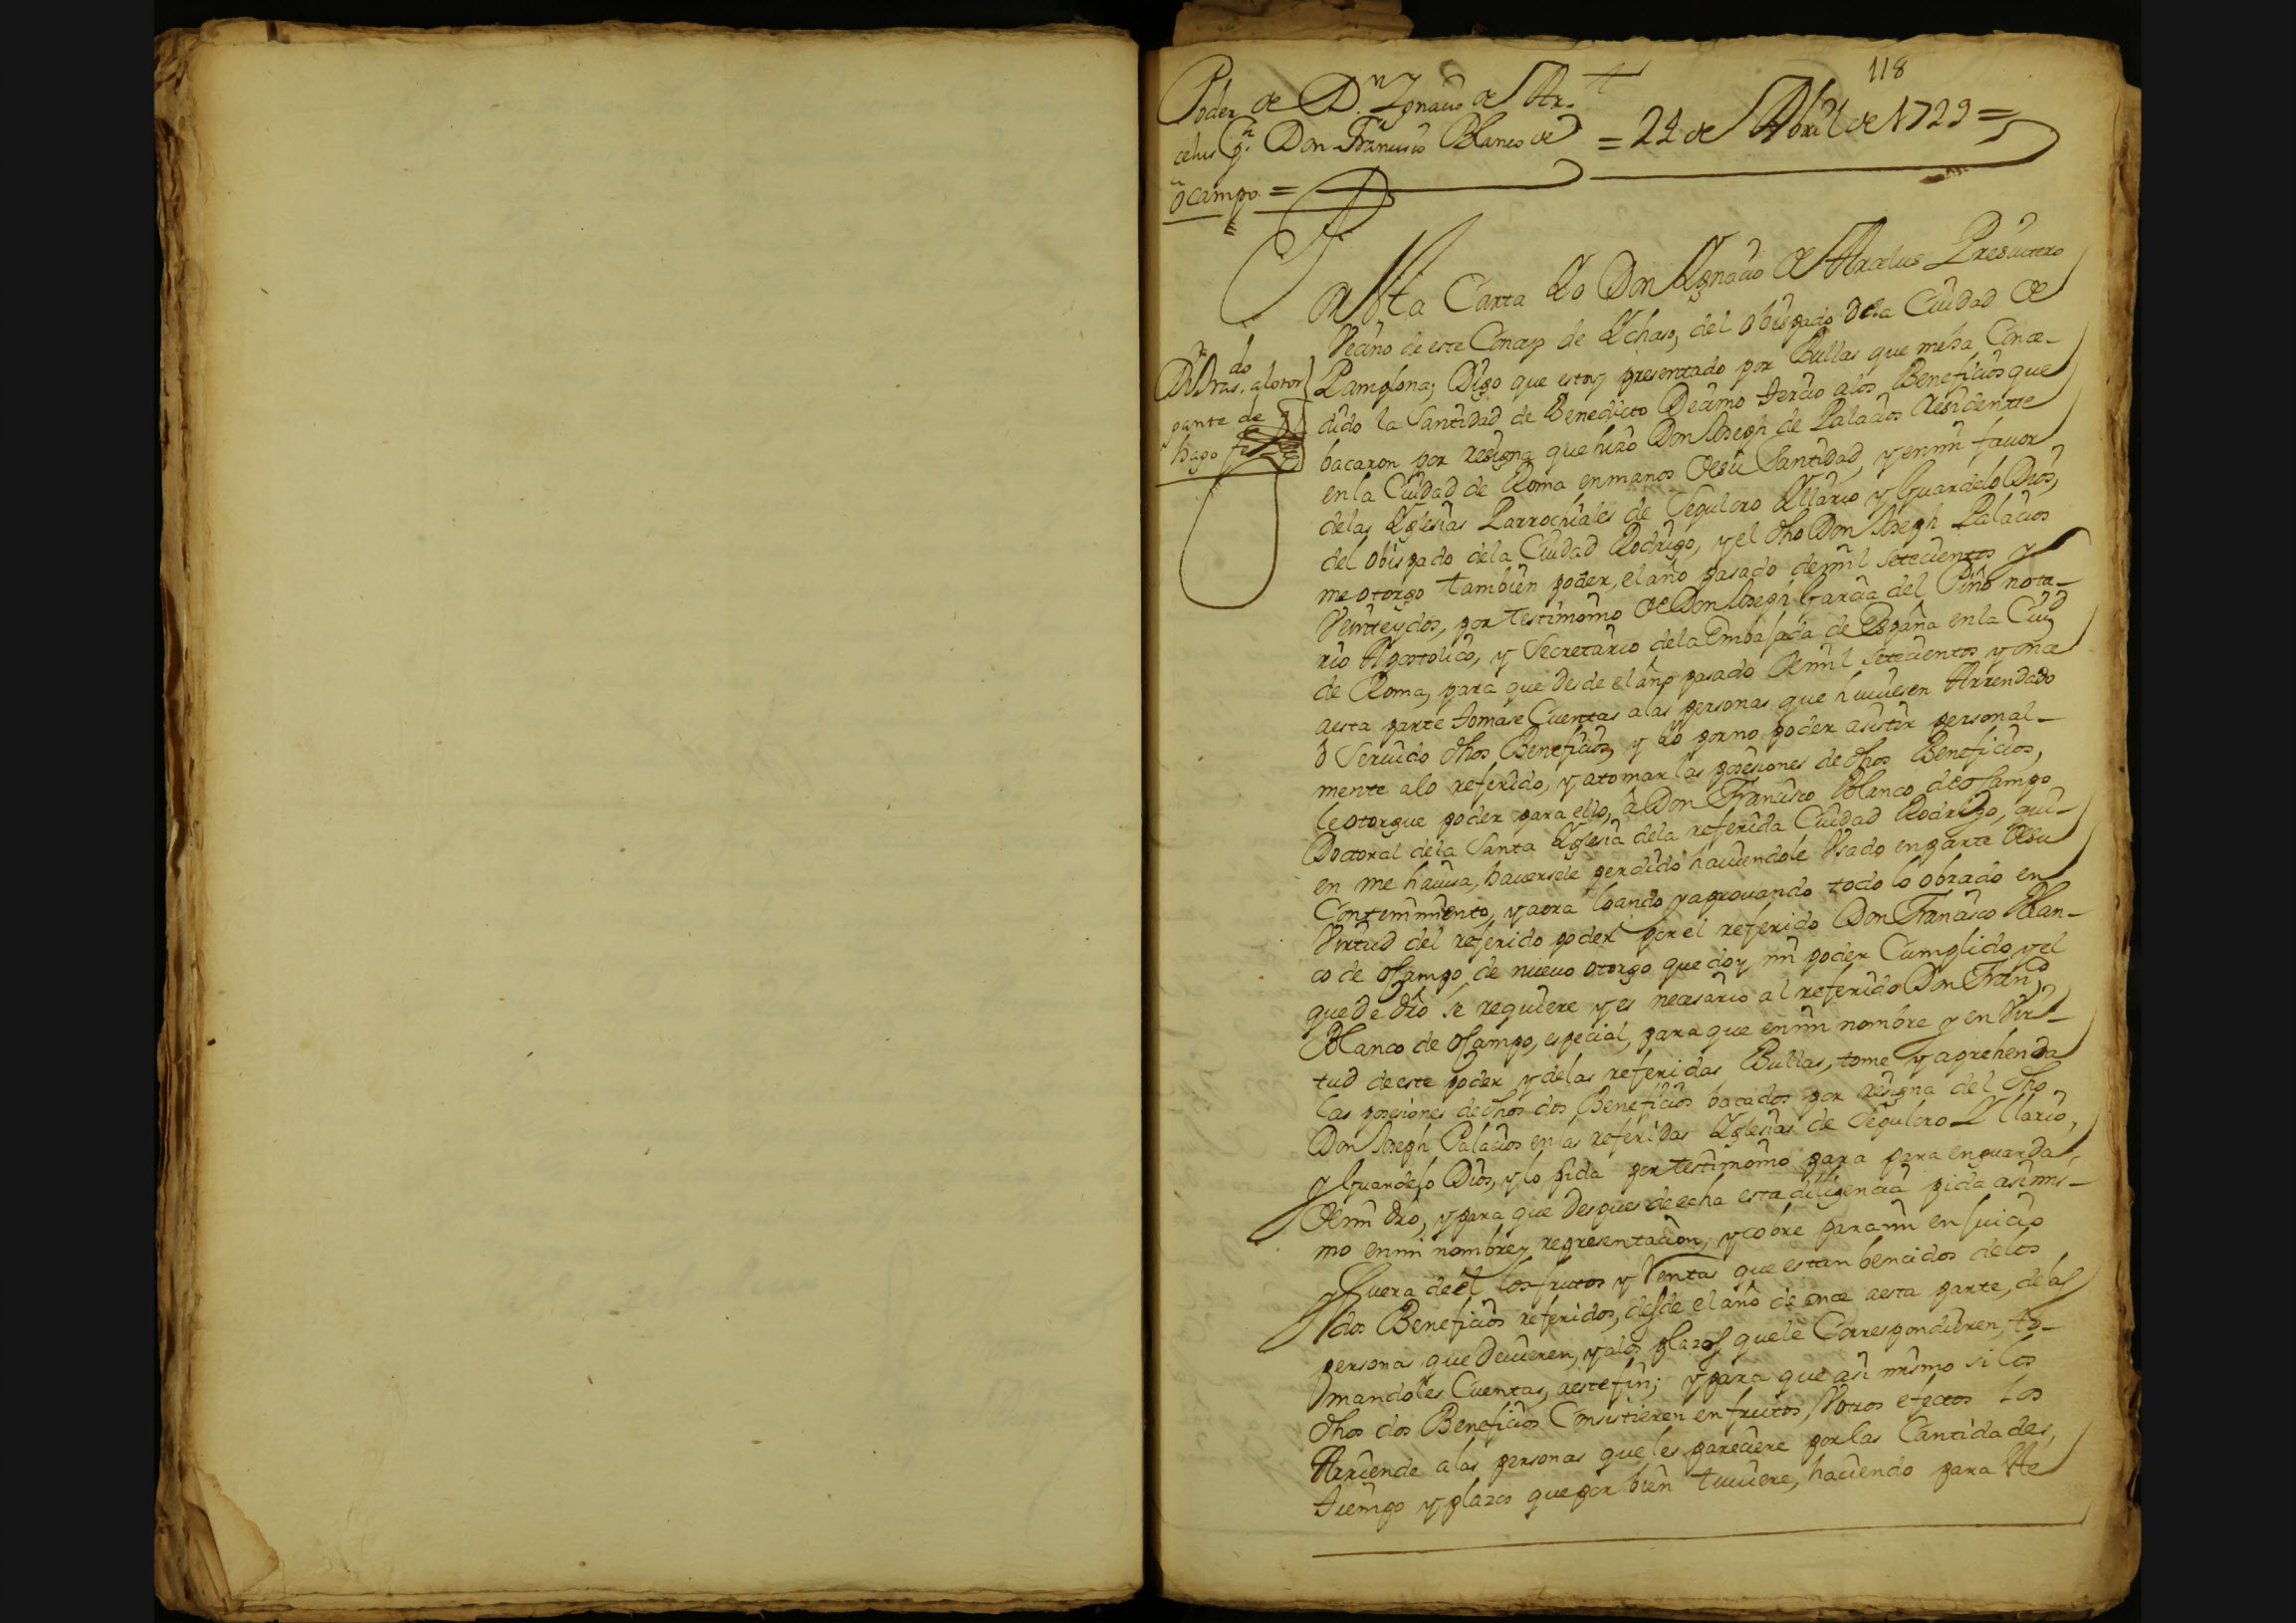 118
Poder de D.n Ygnacio de Ar-
celus p.a Don Francisco Blanco de
Ocampo =
= 24 de Abril de 1729 =
esta Carta Yo Don Ygnacio de Arcelus Presvitero
Vecino de este Concejo de Ychaso, del obispado dela Ciudad de
Pamplona; Digo que estoy presentado por Bullas que meha Conce-
dido la Santidad de Benedicto Decimo tercio alos Beneficios que
bacaron por resigna que hizo Don Joseph de Palacios Residente
en la Ciudad de Roma enmanos de Su Santidad, y enmi favor
delas Yglesias Parrochiales de Sepulcro Yllario y Guardelo Dios,
del obispado dela Ciudad Rodrigo, y el dho Don Joseph Palacios
me otorgo tambien poder, el año pasado demil setecientos y
Veinteydos, por testimonio de Don Joseph Garcia del Pino nota-
rio Apostolico, y Secretario dela Embajada de España en la Ciud
de Roma, para que desde el año pasado de mil setecientos y once
aesta parte tomase Cuentas alas personas que huviesen Arrendado
o Servido dhos Beneficios, y Yo porno poder asistir personal-
mente alo referido, y atomar las posesiones de dhos Beneficios,
le otorgue poder para ello, a Don Francisco Blanco de Ocampo
Doctoral dela Santa Yglesia dela referida Ciudad Rodrigo, qui-
en me havisa, haversele perdido haviendole Usado enparte de su
Contenimiento, y aora loando y aprovando todo lo obrado en
Virtud del referido poder por el referido Don Francisco Blan-
co de Ocampo, de nuevo otorgo que doy mi poder Cumplido, y el
que de dro se requiere y es necesario al referido Don Franco
Blanco de Ocampo, especial, para que enmi nombre y en Vir-
tud de este poder y delas referidas Bullas, tome y aprehenda
las posesiones de dhos dos Beneficios bacados por resigna del dho
Don Joseph Palacios en las referidas Yglesias de Sepulcro Yllario,
y Guardelo Dios, y lo pida por testimonio para para enguarda
de mi dro, y para que despues de echa esta diligencia pida asimis-
mo enmi nombre y representacion, y cobre para mi en Juicio
y fuera de el los frutos y Rentas que estan bencidos delos
dos Beneficios referidos, desde el año de once aesta parte, delas
personas que devieren, y alos plazos quele Correspondieren, to-
mandoles Cuentas, aeste fin; y para que asi mismo si los
dhos dos Beneficios Consistieren en frutos, Yotros efectos los
Arriende alas personas que les pareciere porlas Cantidades,
tiempo y plazos que por bien tuviere, haciendo para
do
alotor
gante de
hago fe